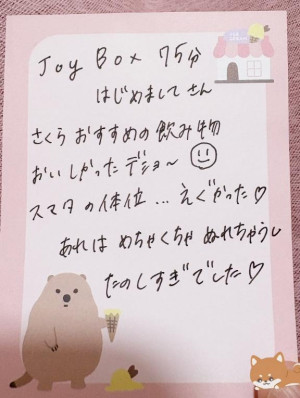 Joy Box 75分
はじめまして さん
さくら おすすめの 飲み物
おいしかったデショ〜
スマタ の 体位 … えぐかった♡
あれは めちゃくちゃ ぬれちゃうし
たのしすぎでした♡